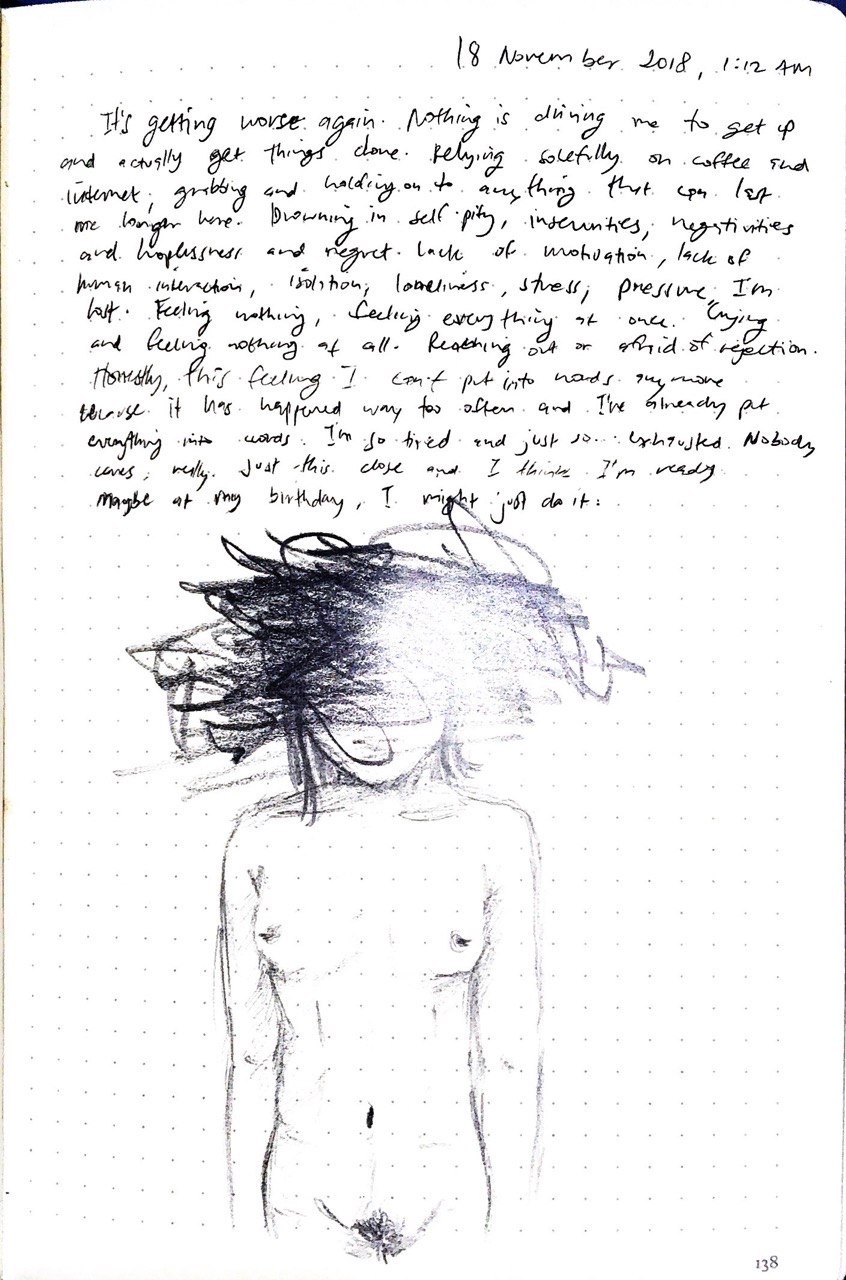 18 November 2018, 1:12 AM
It's getting worse again. Nothing is driving me to get up
and actually get things done. Relying solefully on coffee and
internet, grabbing and holding on to anything that can last
me longer here. Drowning in self pity, insecurities, negativities
and hoplessness and regret. Lack of motivation, lack of
human interaction, isolation, loneliness, stress, pressure, I'm
lost. Feeling nothing, feeling everything at once. Crying
and feeling nothing at all. Reaching out or afraid of rejection.
Honestly, this feeling I can't put into words anymore
because it has happened way too often and I've already put
everything into words. I'm so tired and just so... exhausted. Nobody
cares, really. Just this close and I think I'm ready
maybe at my birthday, I might just do it.
138